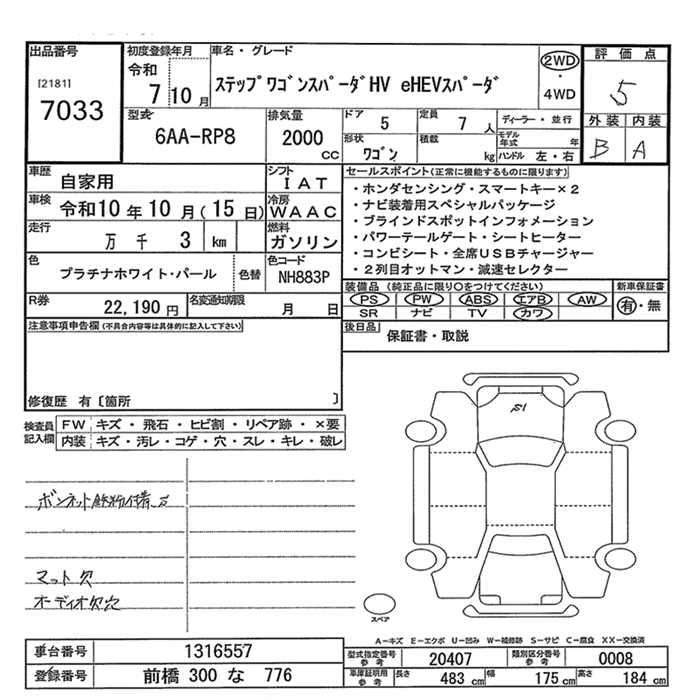 出品番号
[2181]
7033
初度登録年月
令和
7 10 月
車名・グレード
ステップワゴンスパーダHV eHEVスパーダ
2WD
・
4WD
評価点
5
外装 内装
B A
型式
6AA-RP8
排気量
2000
cc
ドア
5
定員
7 人
形状
ワゴン
積載
kg
ディーラー・並行
モデル
年式 年
ハンドル 左・右
車歴
自家用
シフト
IAT
車検
令和10年10月(15日)
冷房
WAAC
走行
万 千 3 km
燃料
ガソリン
色
プラチナホワイト・パール
色替
色コード
NH883P
R券
22,190 円
名変通知期限
月 日
セールスポイント(正常に機能するものに限ります)
・ホンダセンシング・スマートキー×2
・ナビ装着用スペシャルパッケージ
・ブラインドスポットインフォメーション
・パワーテールゲート・シートヒーター
・コンビシート・全席USBチャージャー
・2列目オットマン・減速セレクター
装備品(純正品に限り○をつけてください)
PS PW ABS エアB AW
SR ナビ TV カワ
新車保証書
有・無
後日品
保証書・取説
注意事項申告欄(不具合内容等は具体的に記入して下さい)
修復歴 有〔箇所 〕
検査員
記入欄
FW キズ・飛石・ヒビ割・リペア跡・×要
内装 キズ・汚レ・コゲ・穴・スレ・キレ・破レ
ボンネット鉄粉付着
マット欠
オーディオ欠穴
スペア
A−キズ E−エクボ U−凹み W−補修跡 S−サビ C−腐食 XX−交換済
車台番号
1316557
登録番号
前橋 300 な 776
型式指定番号
参考
20407
類別区分番号
参考
0008
車庫証明用
参考
長さ 483 cm
幅 175 cm
高さ 184 cm